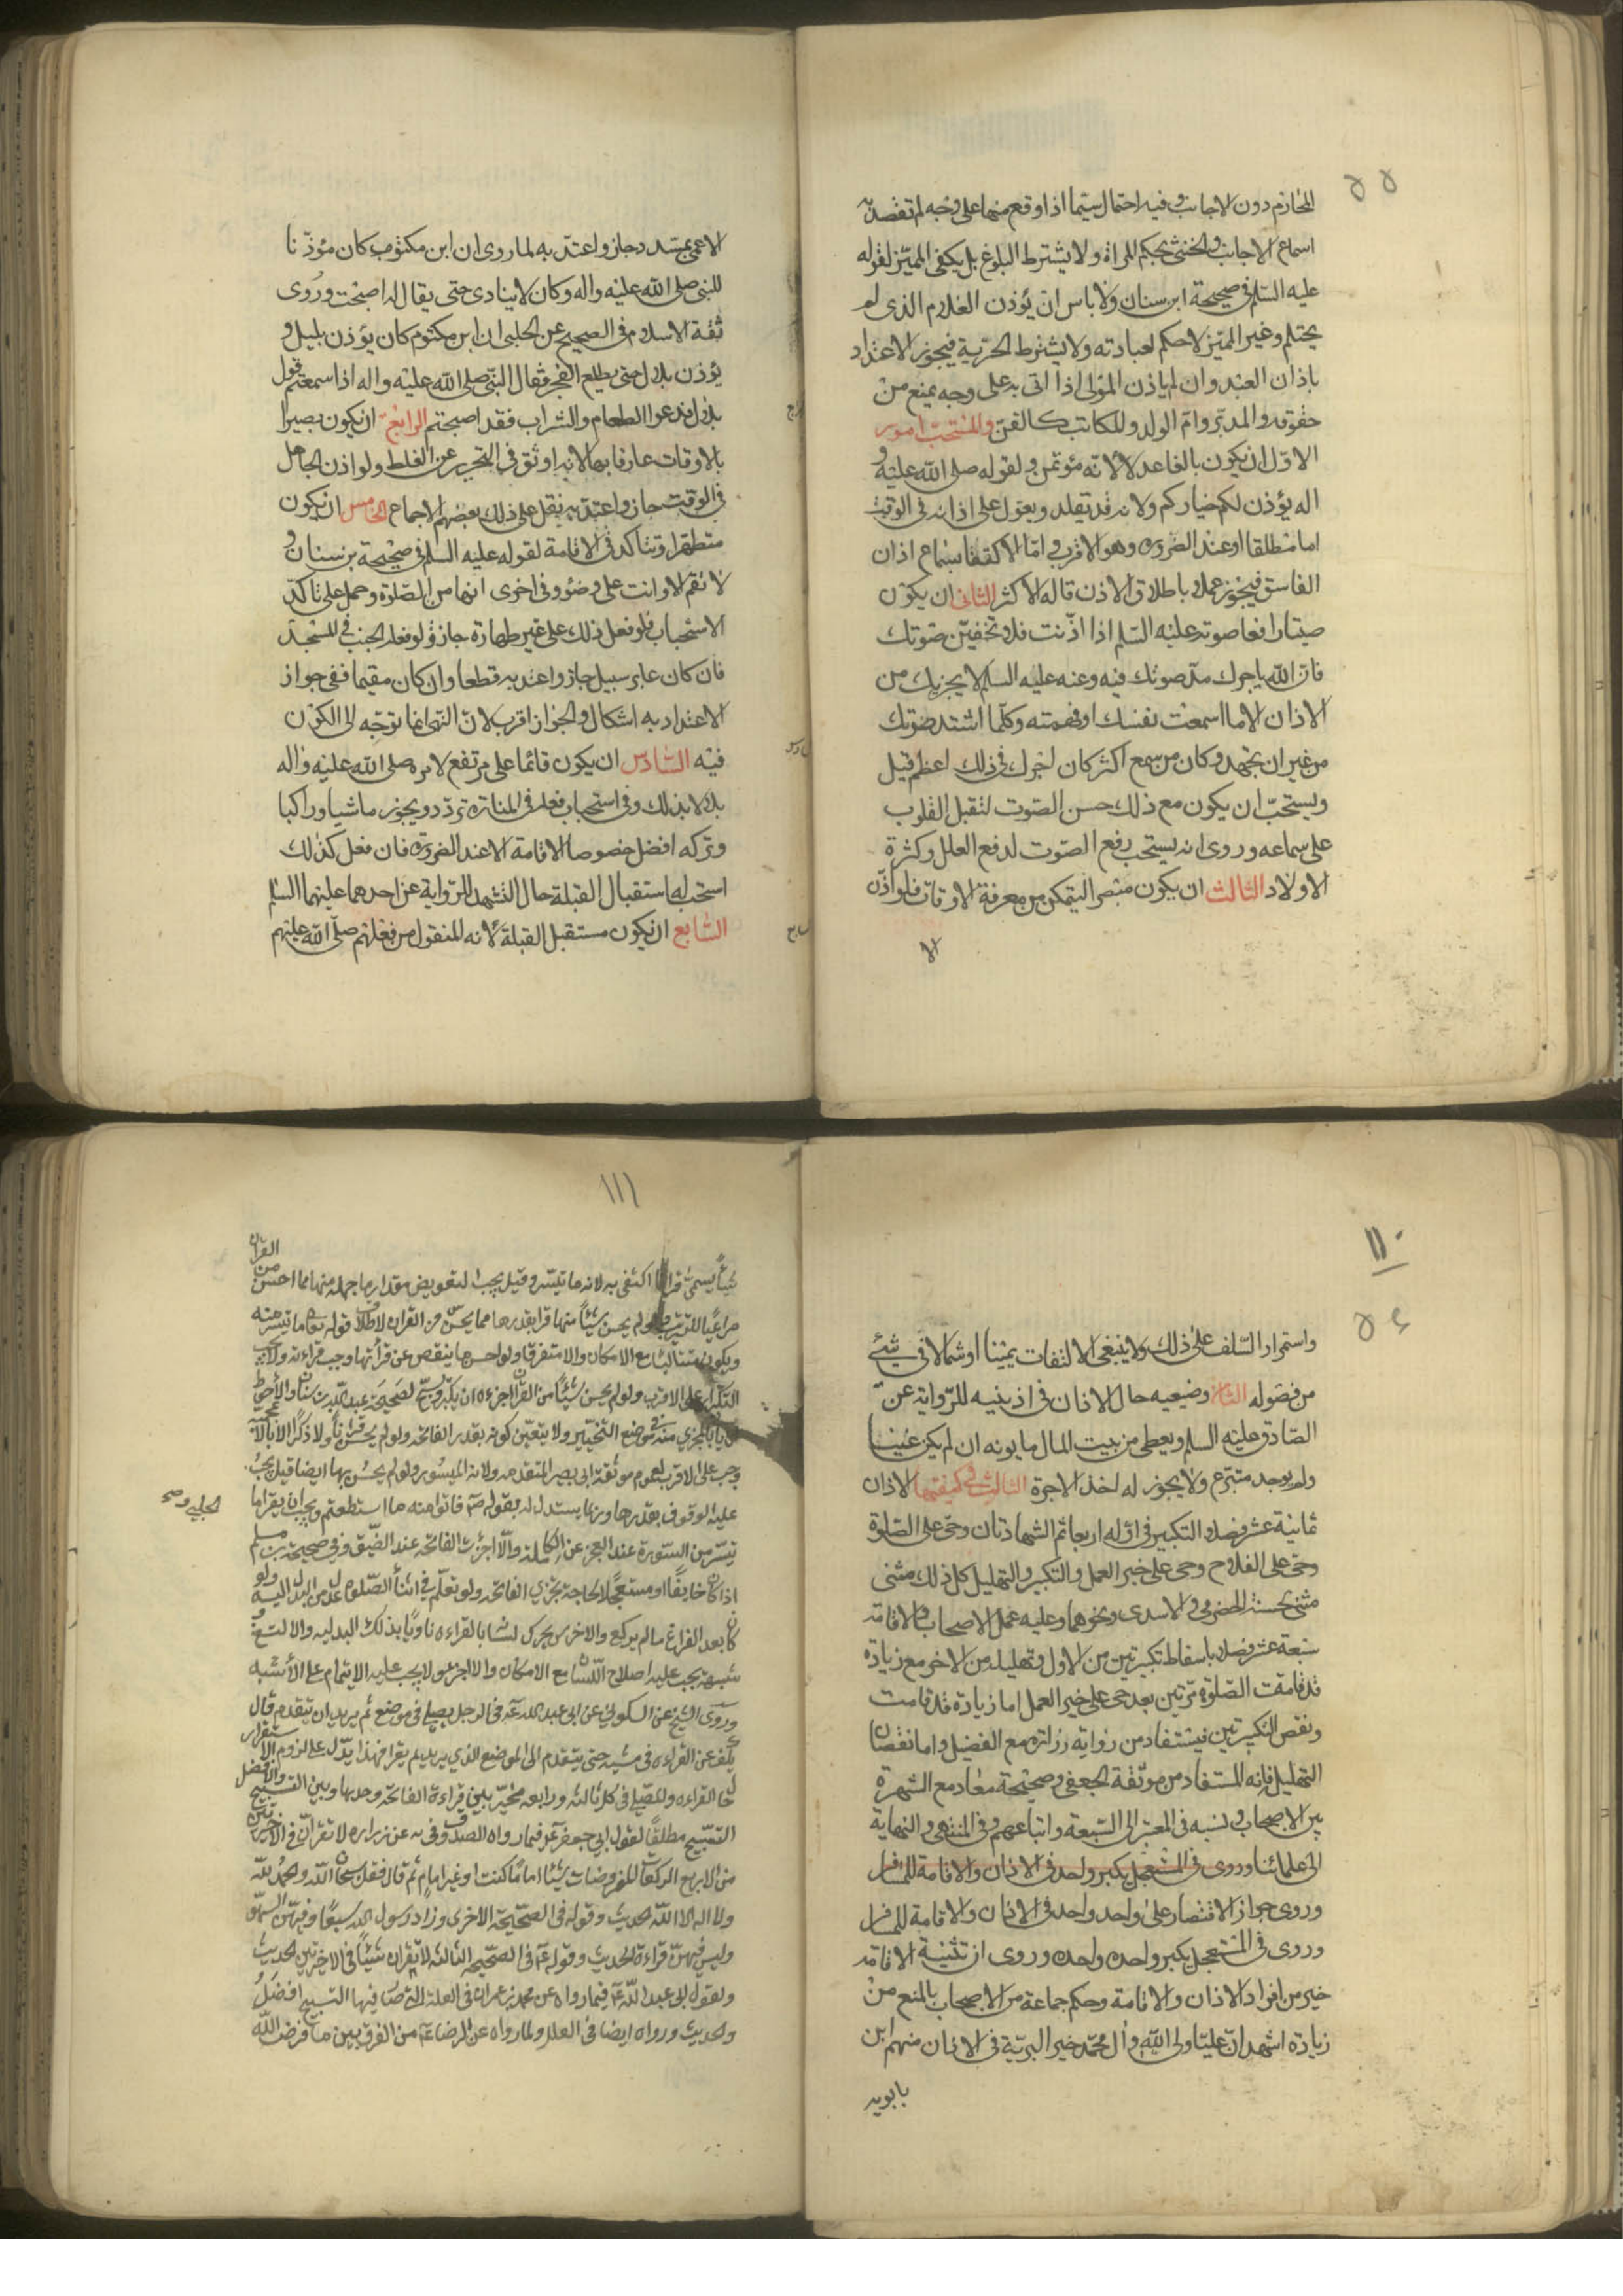 ٥٥
المحارم دون الاجانب وفيه احتمال سيّما اذا وقع منها على وجه لم تقصد به
اسماع الاجانب والخنثى بحكم المراة ولا يشترط البلوغ بل يكفى المميّز لقوله
عليه السّلم فى صحيحة ابن سنان ولا باس ان يؤذن الغلام الذى لم
يحتلم وغير المميّز لا حكم لعبادته ولا يشترط الحرّية فيجوز الاعتداد
باذان العبد وان لم ياذن المولى اذا اتى به على وجه يمنع من
حقوقه والمدبّر وامّ الولد والمكاتب كالقنّ والمستحبّ امور
الاوّل ان يكون بالغا عدلا لانّه مؤتمن ولقوله صلى الله عليه و
اله يؤذن لكم خياركم ولانه قد يقلد ويعوّل على اذانه فى الوقت
اما مطلقا او عند الضرورة وهو الاقرب وامّا الاكتفا بسماع اذان
الفاسق فيجوز عملا باطلاق الاذن قاله الاكثر الثانى ان يكون
صيّتا رافعا صوته لقوله عليه السّلم اذا اذّنت فلا تخفينّ صوتك
فان الله ياجرك مدّ صوتك فيه وعنه عليه السلم لا يجزيك من
الاذان الا ما اسمعت نفسك او فهمته وكلّما اشتد صوتك
من غير ان تجهد وكان من سمع اكثر كان اجرك فى ذلك اعظم قيل
ويستحبّ ان يكون مع ذلك حسن الصّوت لتقبل القلوب
على سماعه وروى انه يستحب رفع الصّوت لدفع العلل وكثرة
الاولاد الثالث ان يكون مبصرا ليتمكن من معرفة الاوقات فلو اذّن
الا
الاعمى بمسدد جاز واعتدّ به لما روى ان ابن مكتوم كان مؤذّنا
للنبى صلى الله عليه واله وكان لا ينادى حتى يقال له اصبحت وروى
ثقة الاسلام فى الصحيح عن الحلبى ان ابن مكتوم كان يؤذن بليل و
يؤذن بلال حتى يطلع الفجر فقال النّبى صلى الله عليه واله اذا سمعتم قول
بلال فدعوا الطعام والشراب فقد اصبحتم الرابع ان يكون بصيرا
بالاوقات عارفا بها لانه اوثق فى التحرير عن الغلط ولو اذن الجاهل
فى الوقت جاز واعتدّ به نقل على ذلك بعضهم الاجماع الخامس ان يكون
متطهرا وتتاكد فى الاقامة لقوله عليه السلم فى صحيحة بن سنان و
لا تقم الا وانت على وضؤ وفى اخرى انها من الصّلوة وحمل على تاكّد
الاستحباب فلو فعل ذلك على غير طهارة جاز ولو فعله الجنب فى المسجد
فان كان عابر سبيل جاز واعتد به قطعا وان كان مقيما ففى جواز
الاعتداد به اشكال والجواز اقرب لانّ النهى انما توجّه الى الكون
فيه السّادس ان يكون قائما على مرتفع لامره صلى الله عليه واله
بلالا بذلك وفى استحباب فعله فى المنارة تردّد ويجوز ماشيا وراكبا
وتركه افضل خصوصا الاقامة الا عند الضرورة فان فعل كذلك
استحب له استقبال القبلة حال التشهد للرّواية عن احدهما عليهما السّلم
السّابع ان يكون مستقبل القبلة لانه المنقول من فعلهم صلّى الله عليهم
١١٠
٥٦
واستمرار السّلف على ذلك ولا ينبغى الالتفات يمينا او شمالا فى شئ
من فصوله الثامن وضع يديه حال الاذان فى اذنيه للرّواية عن
الصّادق عليه السلم ويعطى من بيت المال مايونه ان لم يكن غنيا
ولم يوجد متبرّع ولا يجوز له اخذ الاجرة الثالث فى كيفيتها الاذان
ثمانية عشر فصلا التكبير فى اوّله اربعا ثم الشهادتان وحىّ على الصّلوة
وحىّ على الفلاح وحى على خير العمل والتكبير والتهليل كل ذلك مثنى
مثنى لحسنة الحضرمى والاسدى ونحوهما وعليه عمل الاصحاب والاقامة
سبعة عشر فصلا باسقاط تكبيرتين من الاول وتهليلة من الاخر مع زيادة
قد قامت الصّلوة مرّتين بعد حى على خير العمل اما زيادة قد قامت
ونقص التكبيرتين فيستفاد من رواية زرارة مع الفضيل واما نقصان
التهليل فانه المستفاد من موثقة الجعفى وصحيحة معاذ مع الشهرة
بين الاصحاب ونسبه فى المعتبر الى السّبعة واتباعهم وفى المنتهى والنهاية
الى علمائنا وروى فى المستعجل يكبر واحدة فى الاذان والاقامة للمسافر
وروى جواز الاقتصار على واحد واحد فى الاذان والاقامة للمسافر
وروى فى المستعجل يكبر واحدة واحده وروى ان تثنية الاقامة
خير من افراد الاذان والاقامة وحكم جماعة من الاصحاب بالمنع من
زيادة اشهد انّ عليّا ولى الله وآل محمّد خير البريّة فى الاذان منهم ابن
بابويه
١١١
القران
شيئاً يسمى قرانا اكتفى به لانه ما تيسّر وقيل يجب التعويض مقدارها جملة منها مما احسن من
مراعيًا للترتيب ولو لم يحسن شيئًا منها قرا بقدرها مما يحسن من القران لاطلاق قوله تعا ما تيسّر منه
ويكون متتاليًا مع الامكان والا متفرقا ولو احسن ما ينقص عن قرأتها وجب قراءته ولا يجب
التكرار على الاقرب ولو لم يحسن شيئًا من القران اجزءه ان يكبّر ويسبّح لصحيحة عبد الله بن سنان والأحوط
المجزي منه فى موضع التخيير ولا يتعيّن كونه بقدر الفاتحة ولو لم يحسن قرأنا ولا ذكرًا الا بالآلة
وجب على الاقرب لعموم موثقة ابى بصير المتقدمه ولانه الميسور ولو لم يحسن بها ايضا قيل يجب
عليه الوقوف بقدرها وربما يستدل له بقوله ص فاتوا منه ما استطعتم ويجب ان يقرا ما
تيسّر من السّورة عند العجز عن الكاملة والّا اجزئت الفاتحة عند الضّيق وفى صحيحة الحلبي
اذا كان خايفًا او مستعجلًا لحاجة تجزي الفاتحة ولو تعلّم فى اثنأ الصّلوة عدل من البدل اليه ولو
كان بعد الفراغ ما لم يركع والاخرس يحرك لسانه بالقراءه ناويًا بذلك البدليه
يجب عليه اصلاح اللّسان مع الامكان والا اجزء ولا يجب عليه الايتمام على الأشبه
وروى الشيخ عن السكونيّ عن ابى عبد الله ع فى الرجل يصلى فى موضع ثم يريد ان يتقدم قال
يكفّ عن القراءه فى مشيه حتى يتقدم الى الموضع الذي يريد ثم يقرا فهذا يدّل على لزوم الاستقرار
القراءه وللمصّلي فى كل ثالثه ورابعه مخيّر بين قراءة الفاتحة وحدها وبين التسبيح والافضل
التسبيح مطلقًا لقول ابي جعفر ع فيما رواه الصدوق فى يه عن زراره لا تقران فى الاخيرتين
من الاربع الركعات المفروضات شيئًا امامًا كنت او غير امام ثم قال فقل سبحان الله والحمد لله
ولا اله الا الله الحديث وقوله فى الصحيحة الاخرى وزاد رسول الله سبعًا وفيهن السّهو
وليس فيهنّ قراءة الحديث وقوله ع فى الصحيحة الثالثة لا تقران شيئًا فى الاخيرتين الحديث
ولقول ابى عبد الله ع فيما رواه عن محمد بن عمران فى العلة التى صار فيها التسبيح افضل
والحديث ورواه ايضا فى العلل ولما رواه عن الرضا ع من الفرق بين ما فرض الله